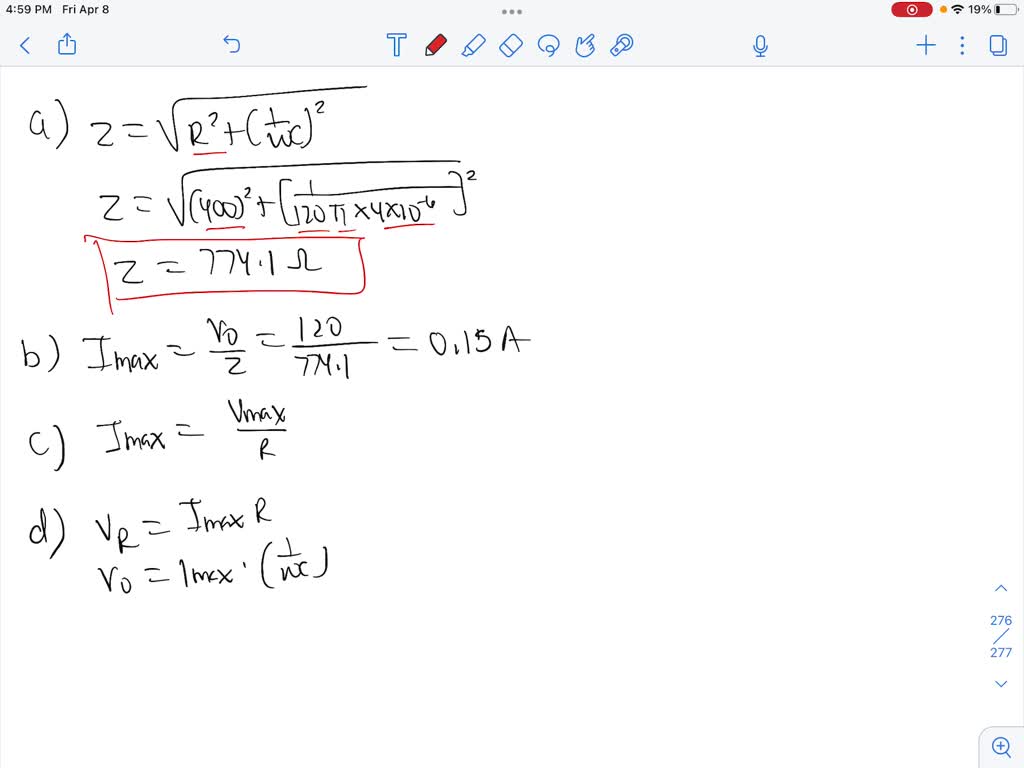 4:59 PM Fri Apr 8
19%
T
a) Z = √R² + (1/wc)²
Z = √(400)² + [1/120π × 4×10⁻⁶]²
Z = 774.1 Ω
b) Imax = V₀/Z = 120/774.1 = 0.15 A
c) Imax = Vmax/R
d) VR = Imax R
V₀ = Imax · (1/wc)
276
/
277